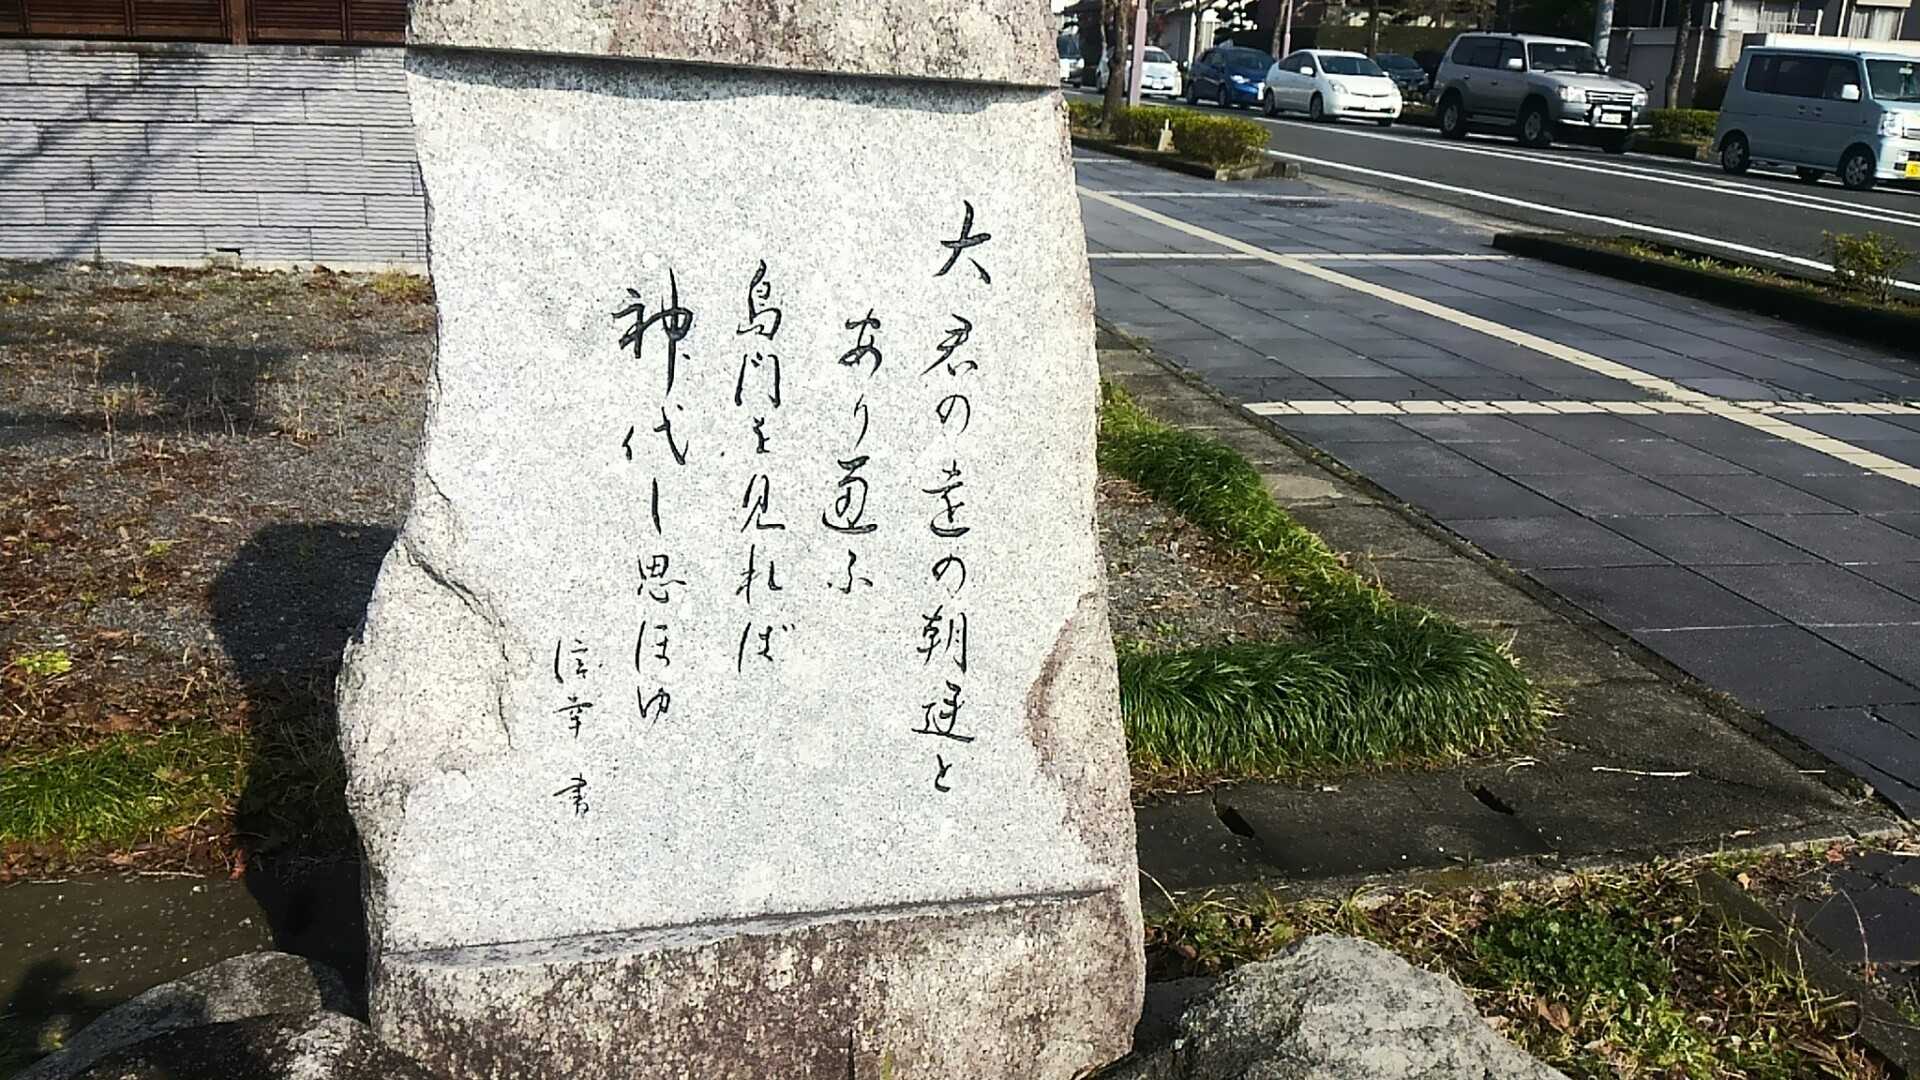 大君の遠の朝廷と
あり通ふ
島門を見れば
神代し思ほゆ
信幸 書